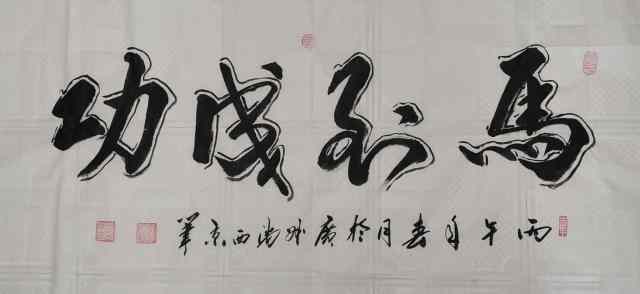 馬到成功
丙午年春月於廣州尚西京筆